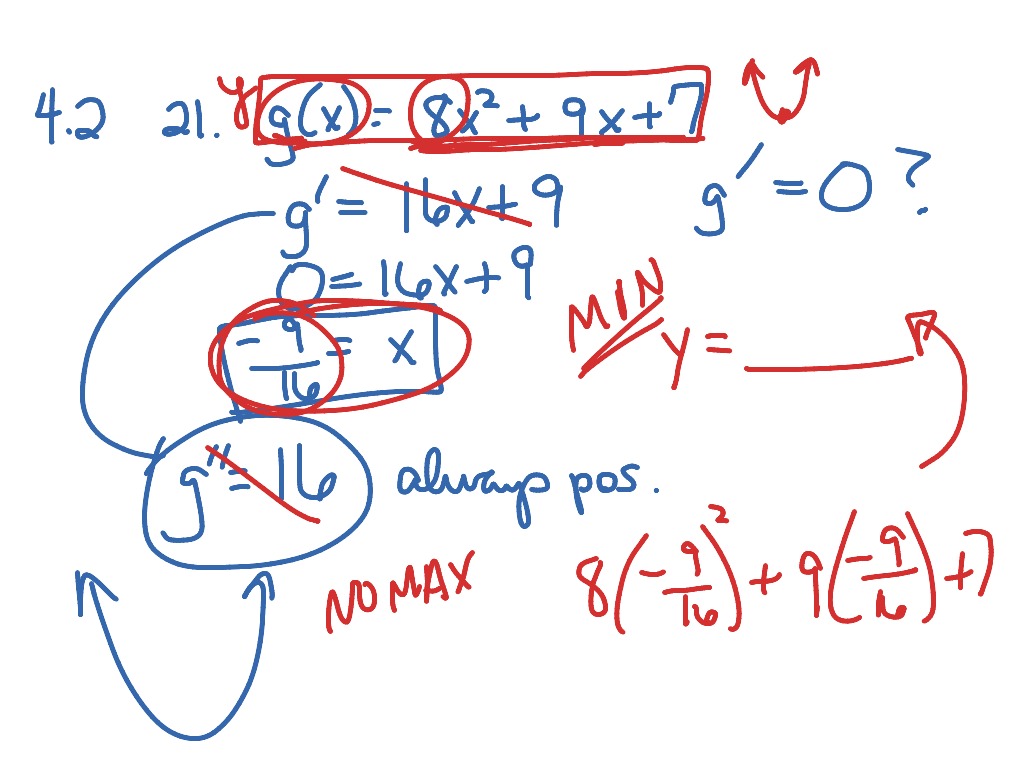 4.2 21. y g(x) = 8x² + 9x + 7
g' = 16x + 9
g' = 0 ?
0 = 16x + 9
-9/16 = x
MIN y = ______
g'' = 16 always pos.
NO MAX
8(-9/16)² + 9(-9/16) + 7